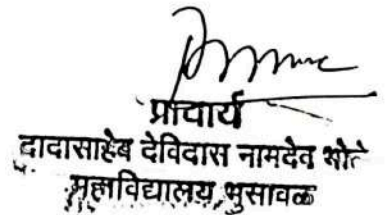 प्राचार्य
दादासाहेब देविदास नामदेव भोळे
महाविद्यालय, भुसावळ